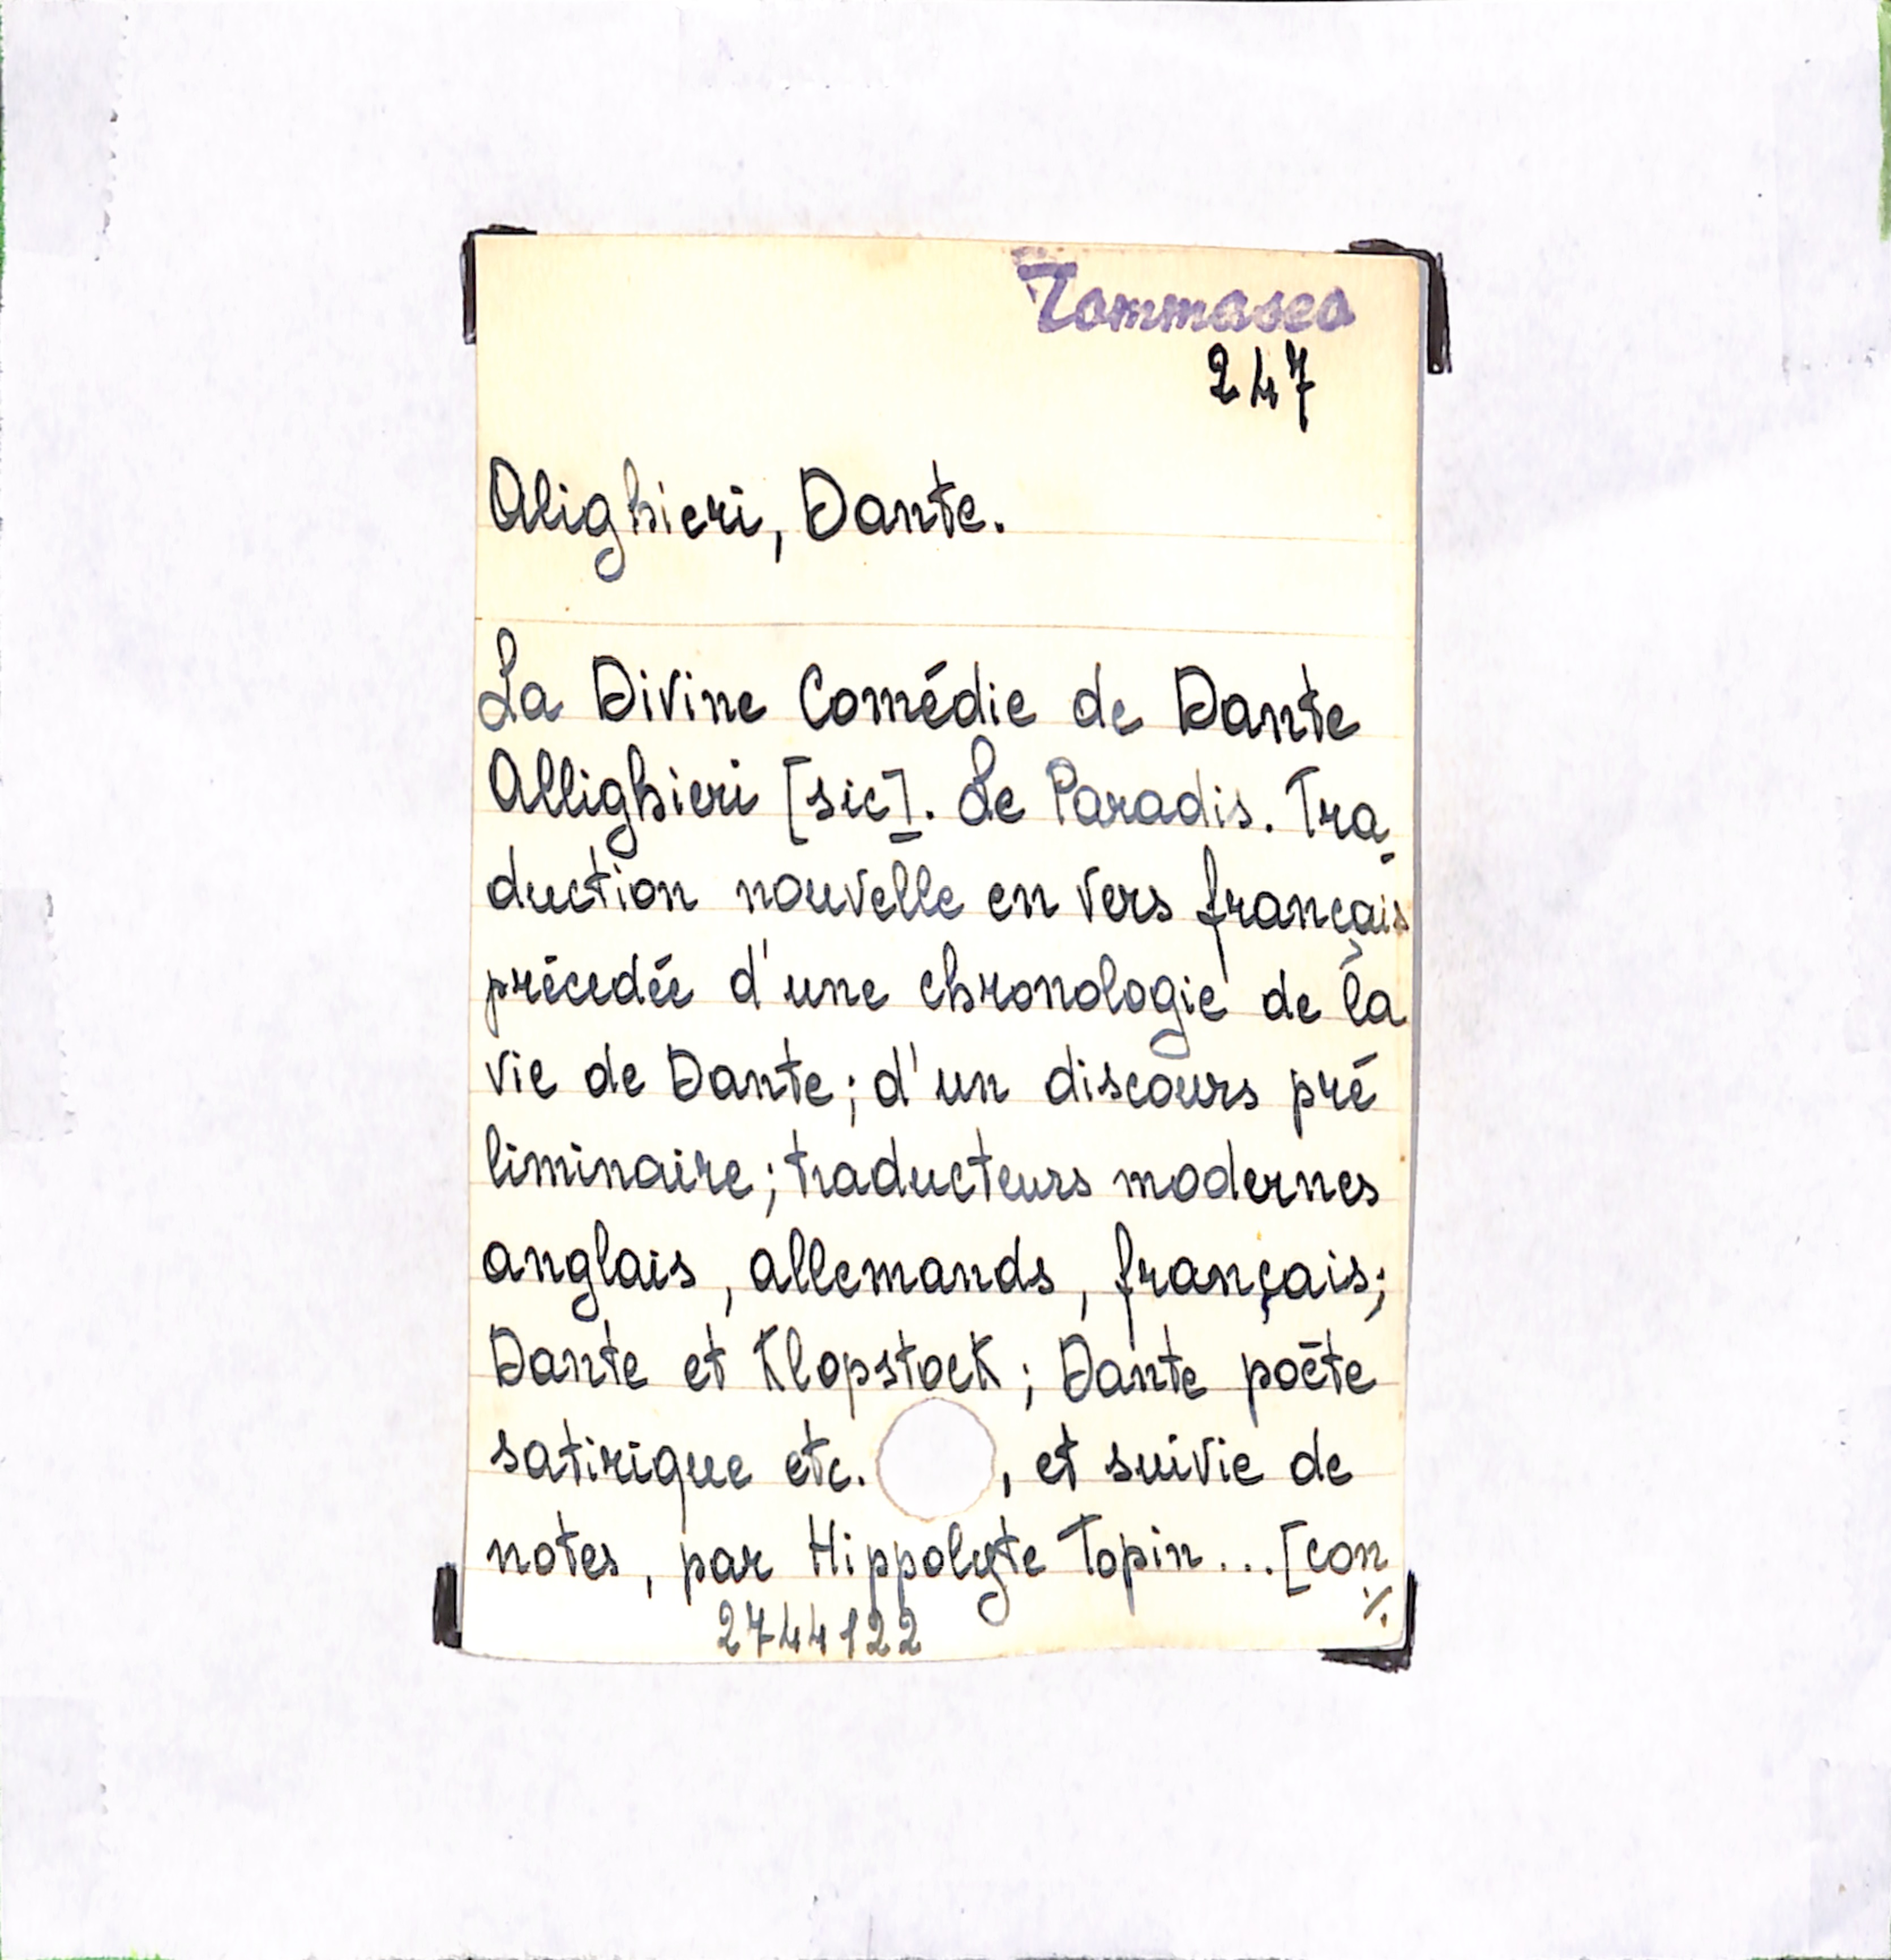 Tommaseo
247
Alighieri, Dante.
La Divine Comédie de Dante
Allighieri [sic]. Le Paradis. Tra-
duction nouvelle en vers français
précedée d'une chronologie de la
vie de Dante; d'un discours pré
liminaire; traducteurs modernes
anglais, allemands, français;
Dante et Klopstock; Dante poëte
satirique etc. , et suivie de
notes, par Hippolyte Topin...[con
%
2744122